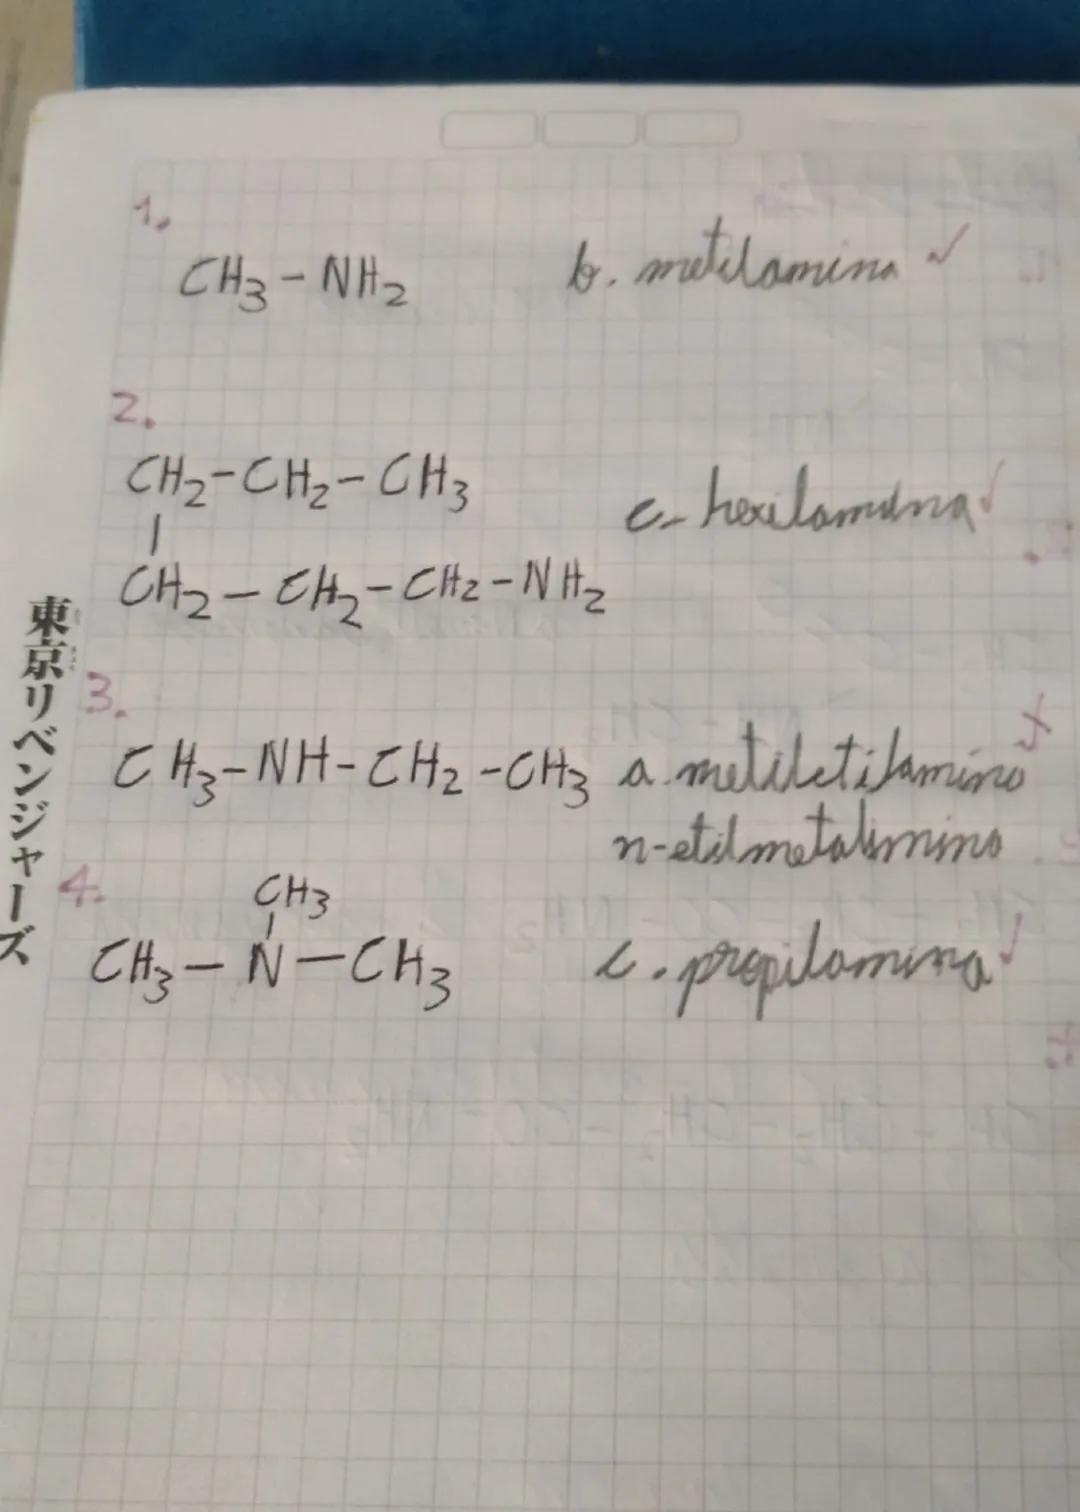 1.
CH3 - NH2 b. metilamina ✓
2.
CH2 - CH2 - CH3
|
c- hexilamina ✓
CH2 - CH2 - CH2 - NH2
東京リベンジャーズ
3.
CH3 - NH - CH2 - CH3 a. metiletilamino x
n-etilmetalimino
4.
CH3
|
CH3 - N - CH3 c. propilamina ✓